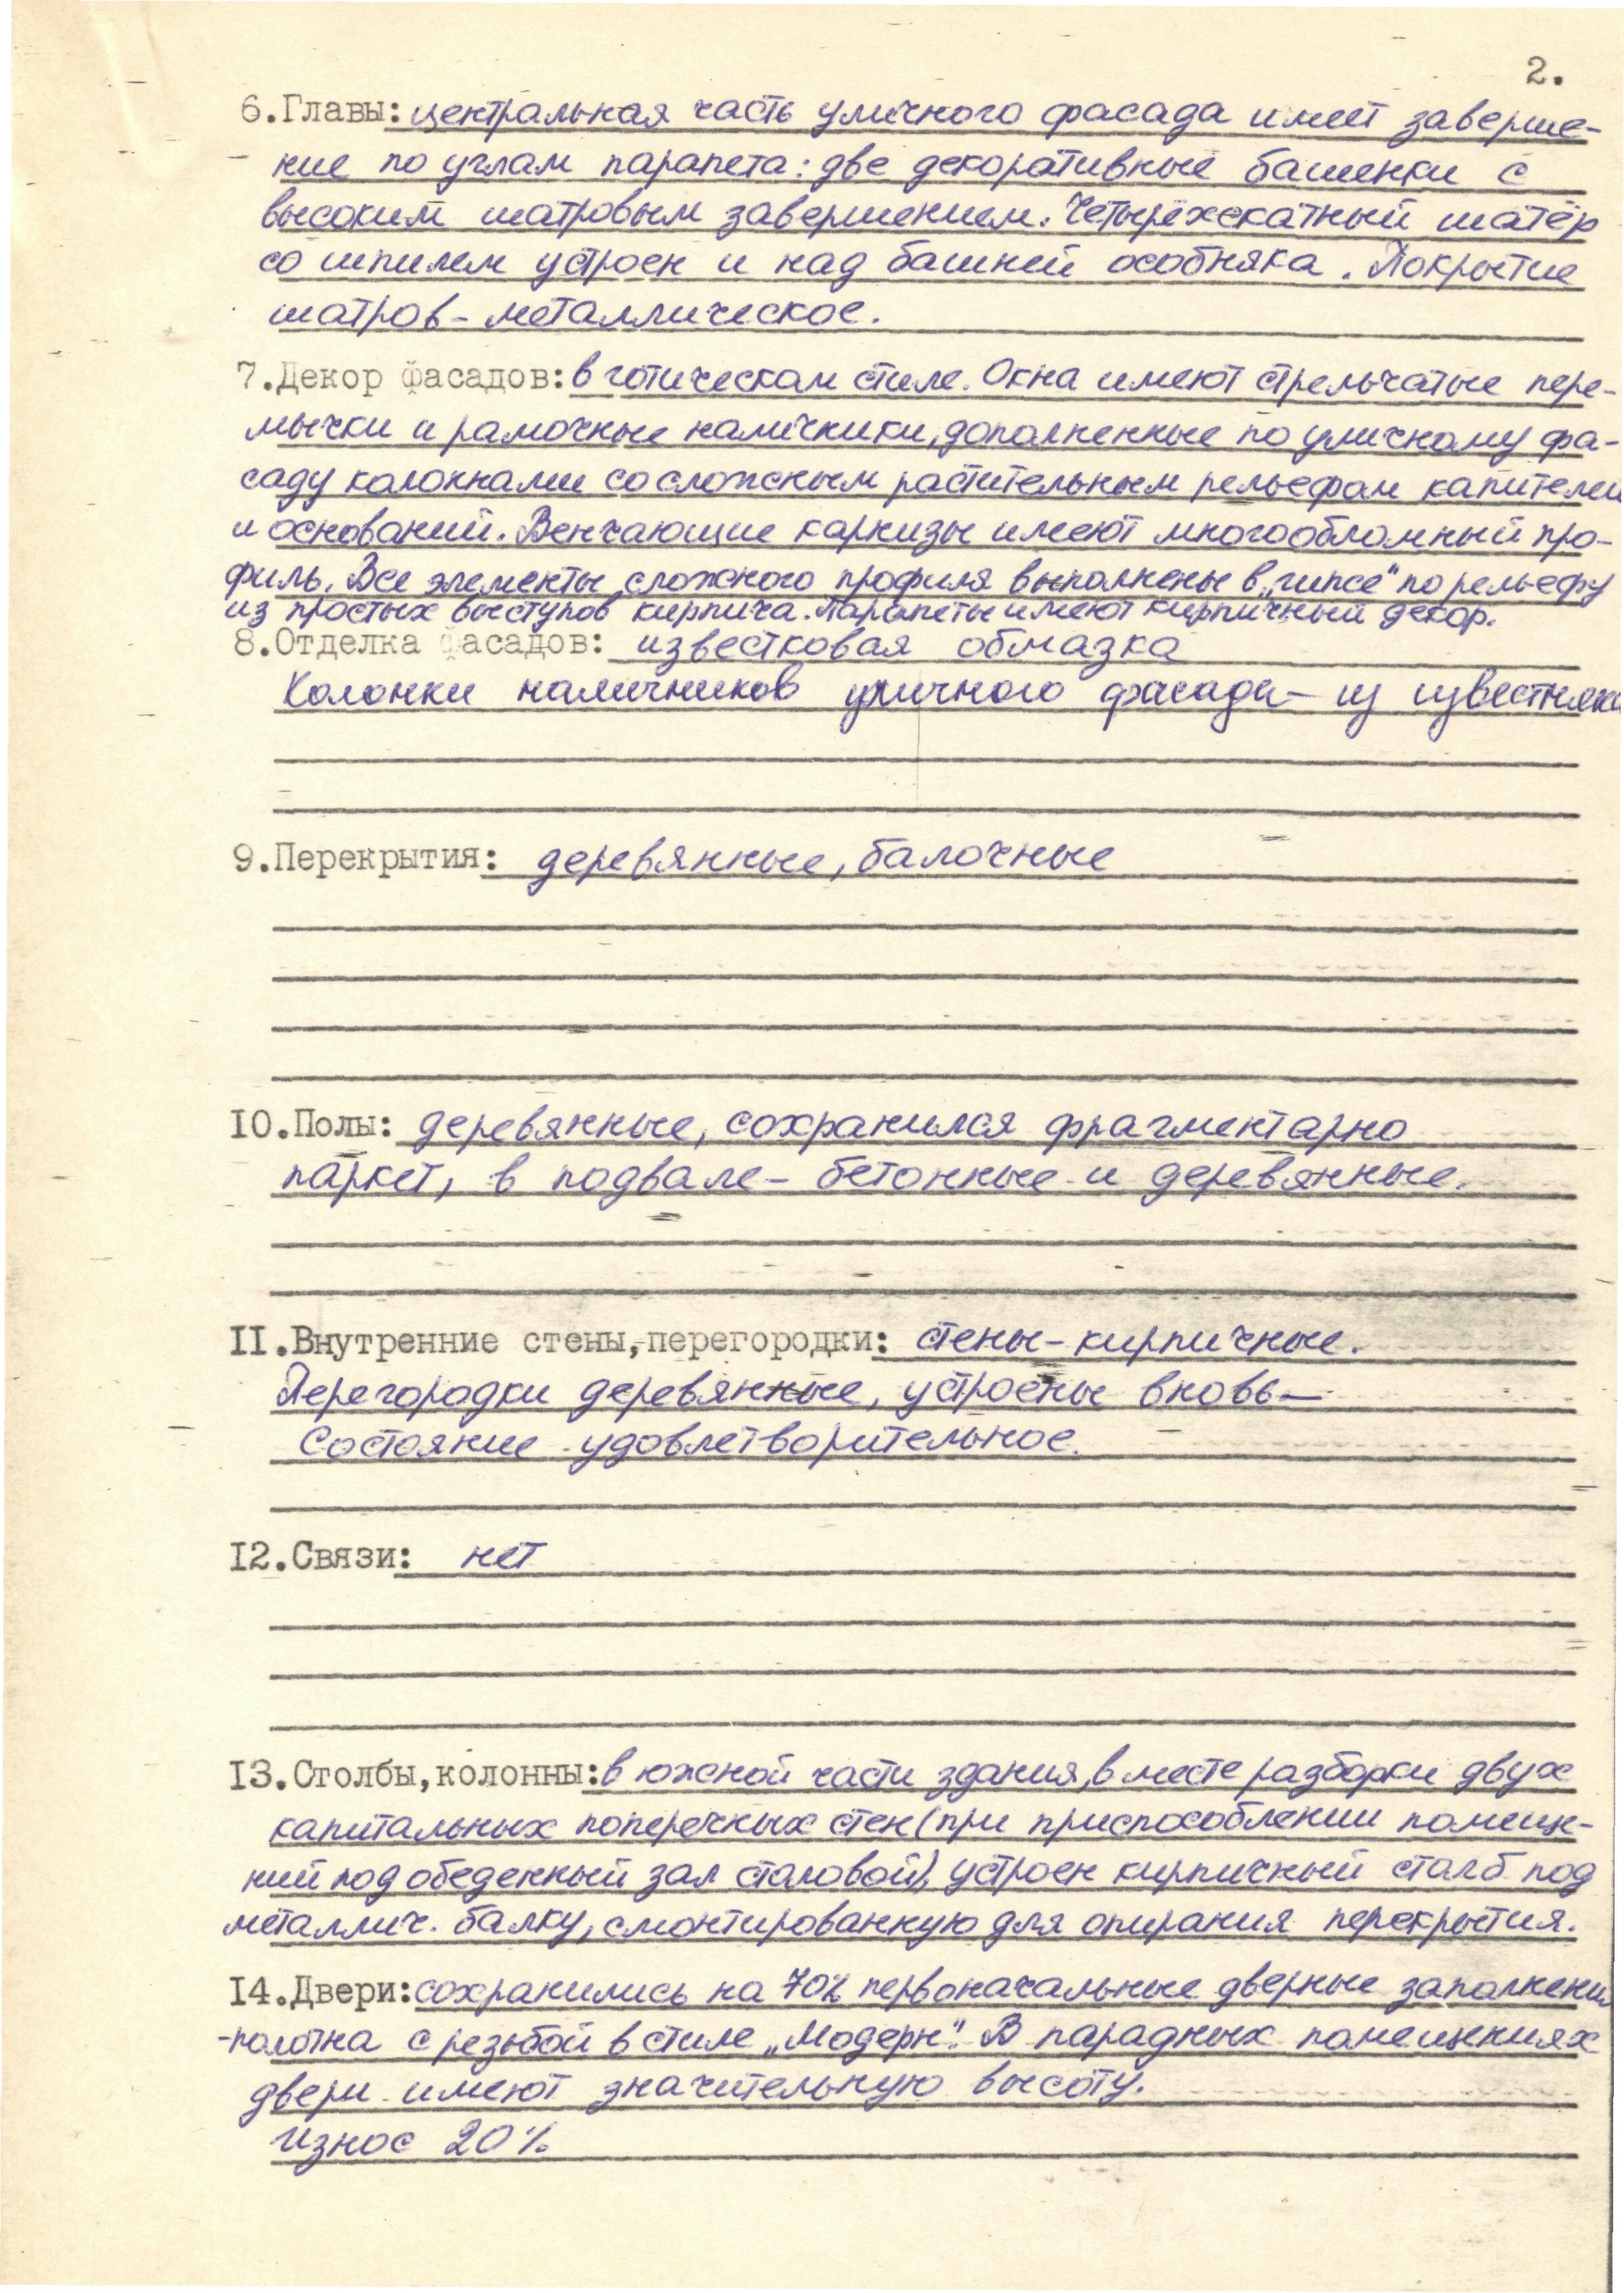 2.
6.Главы: центральная часть уличного фасада имеет заверше-
ние по углам парапета: две декоративные башенки с
высоким шатровым завершением. Четырёхскатный шатёр
со шпилем устроен и над башней особняка. Покрытие
шатров - металлическое.
7.Декор фасадов: в готическом стиле. Окна имеют стрельчатые пере-
мычки и рамочные наличники, дополненные по уличному фа-
саду колонками со сложным растительным рельефом капителей
и оснований. Венчающие карнизы имеют многообломный про-
филь. Все элементы сложного профиля выполнены в „гипсе" по рельефу
из простых выступов кирпича. Парапеты имеют кирпичный декор.
8.Отделка фасадов: известковая обмазка
Колонки наличников уличного фасада - из известняка
9.Перекрытия: деревянные, балочные
10.Полы: деревянные, сохранился фрагментарно
паркет, в подвале - бетонные и деревянные.
11.Внутренние стены,перегородки: стены - кирпичные.
Перегородки деревянные, устроены вновь -
Состояние удовлетворительное.
12.Связи: нет
13.Столбы,колонны: в южной части здания, в месте разборки двух
капитальных поперечных стен (при приспособлении помеще-
ний под обеденный зал столовой), устроен кирпичный столб под
металлич. балку, смонтированную для опирания перекрытия.
14.Двери: сохранились на 70% первоначальные дверные заполнения
- полотна с резьбой в стиле „Модерн". В парадных помещениях
двери имеют значительную высоту.
Износ 20%